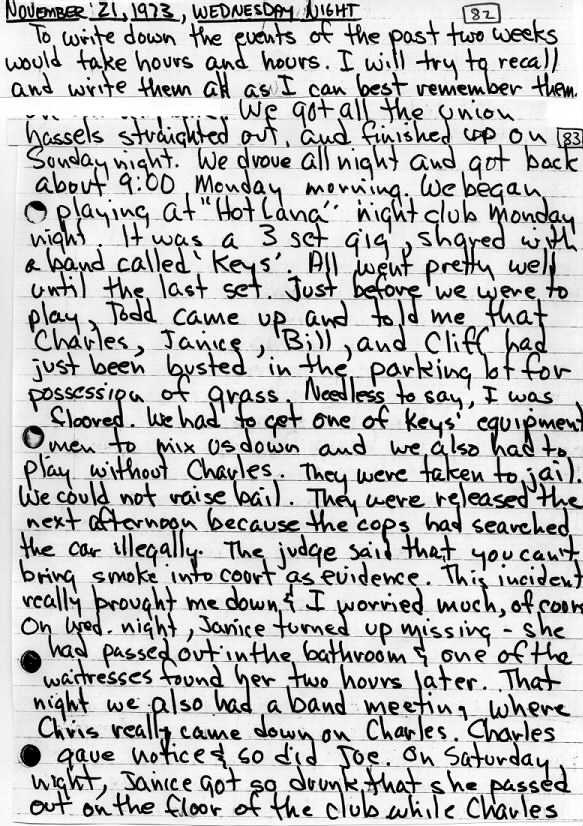 NOVEMBER 21, 1973, WEDNESDAY NIGHT 82
To write down the events of the past two weeks
would take hours and hours. I will try to recall
and write them all as I can best remember them.
We got all the union
hassels straighted out, and finished up on 83
Sunday night. We drove all night and got back
about 9:00 Monday morning. We began
playing at "Hotlana" night club Monday
night. It was a 3 set gig, shared with
a band called 'Keys'. All went pretty well
until the last set. Just before we were to
play, Todd came up and told me that
Charles, Janice, Bill, and Cliff had
just been busted in the parking lot for
possession of grass. Needless to say, I was
floored. We had to get one of Keys' equipment
men to mix us down and we also had to
play without Charles. They were taken to jail.
We could not raise bail. They were released the
next afternoon because the cops had searched
the car illegally. The judge said that you can't
bring smoke into court as evidence. This incident
really brought me down & I worried much, of
On Wed. night, Janice turned up missing - she
had passed out in the bathroom & one of the
waitresses found her two hours later. That
night we also had a band meeting, where
Chris really came down on Charles. Charles
gave notice & so did Joe. On Saturday
night, Janice got so drunk that she passed
out on the floor of the club while Charles